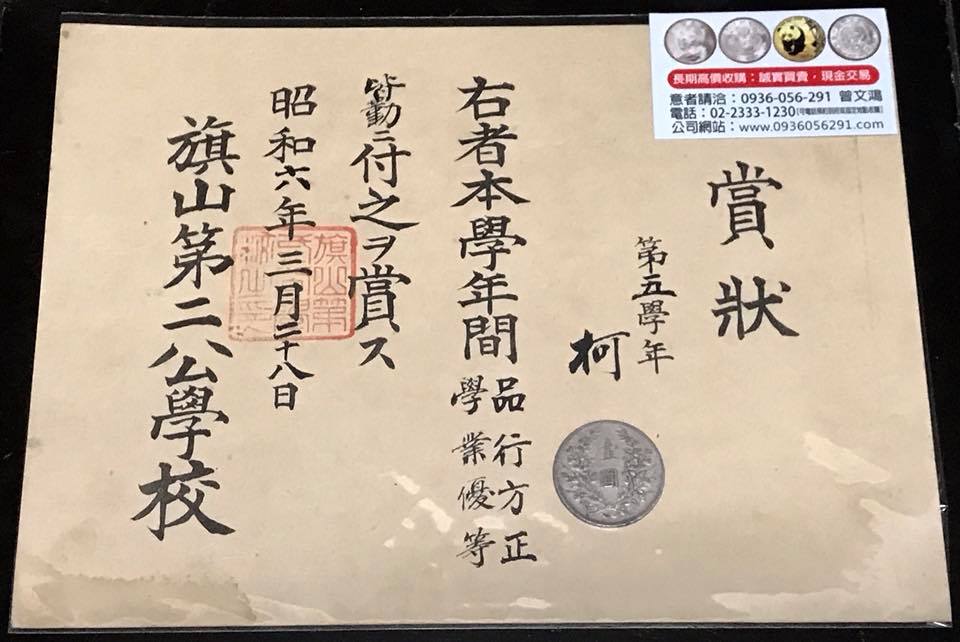 賞狀
第五學年
柯
右者本學年間品行方正
學業優等
皆勤ニ付之ヲ賞ス
昭和六年三月二十八日
旗山第二公學校
旗山第
壹圓
長期高價收購：誠實買賣，現金交易
意者請洽：0936-056-291 曾文鴻
電話：02-2333-1230
公司網站：www.0936056291.com